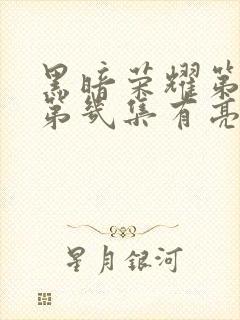 黑暗荣耀第
第几集有亮
星月银河